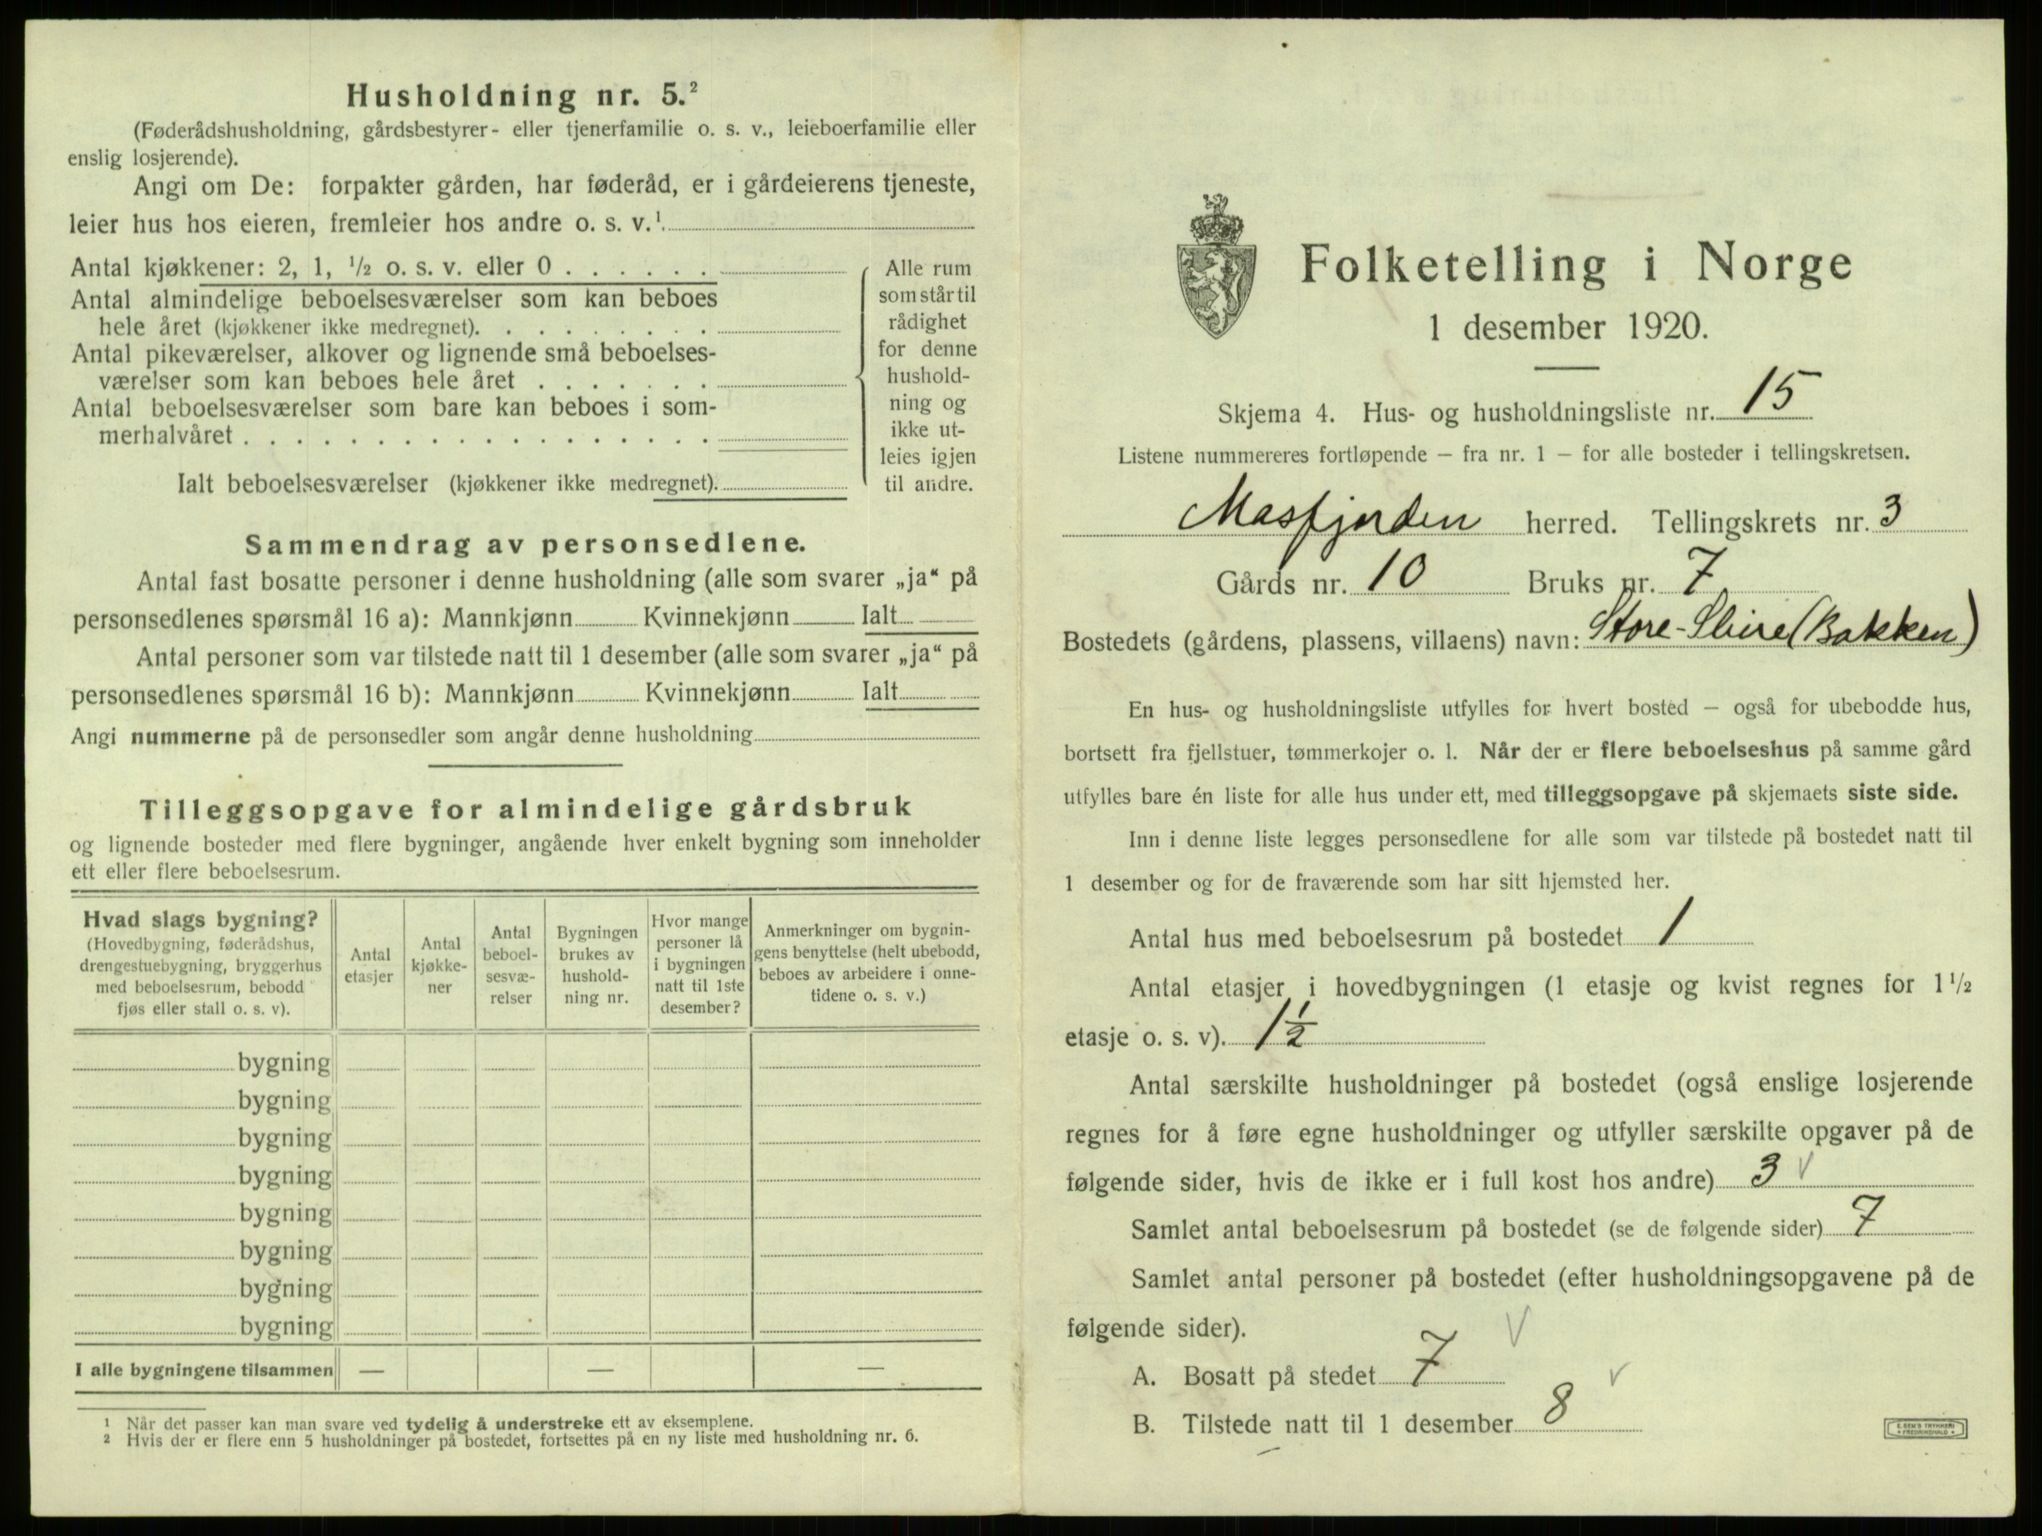 Husholdning nr. 5.²
(Føderådshusholdning, gårdsbestyrer- eller tjenerfamilie o. s. v., leieboerfamilie eller
enslig losjerende).
Angi om De: forpakter gården, har føderåd, er i gårdeierens tjeneste,
leier hus hos eieren, fremleier hos andre o. s. v.¹
Antal kjøkkener: 2, 1, ½ o. s. v. eller 0
Antal almindelige beboelsesværelser som kan beboes
hele året (kjøkkener ikke medregnet).
Antal pikeværelser, alkover og lignende små beboelses-
værelser som kan beboes hele året
Antal beboelsesværelser som bare kan beboes i som-
merhalvåret
Ialt beboelsesværelser (kjøkkener ikke medregnet).
Alle rum
som står til
rådighet
for denne
hushold-
ning og
ikke ut-
leies igjen
til andre.
Sammendrag av personsedlene.
Antal fast bosatte personer i denne husholdning (alle som svarer „ja“ på
personsedlenes spørsmål 16 a): Mannkjønn Kvinnekjønn Ialt
Antal personer som var tilstede natt til 1 desember (alle som svarer „ja“ på
personsedlenes spørsmål 16 b): Mannkjønn Kvinnekjønn Ialt
Angi nummerne på de personsedler som angår denne husholdning
Tilleggsopgave for almindelige gårdsbruk
og lignende bosteder med flere bygninger, angående hver enkelt bygning som inneholder
ett eller flere beboelsesrum.
Hvad slags bygning?
(Hovedbygning, føderådshus,
drengestuebygning, bryggerhus
med beboelsesrum, bebodd
fjøs eller stall o. s. v).
Antal
etasjer
Antal
kjøkke-
ner
Antal
beboel-
sesvæ-
relser
Bygningen
brukes av
hushold-
ning nr.
Hvor mange
personer lå
i bygningen
natt til 1ste
desember?
Anmerkninger om bygnin-
gens benyttelse (helt ubebodd,
beboes av arbeidere i onne-
tidene o. s. v.)
bygning
bygning
bygning
bygning
bygning
bygning
bygning
bygning
I alle bygningene tilsammen — — —
¹ Når det passer kan man svare ved tydelig å understreke ett av eksemplene.
² Hvis der er flere enn 5 husholdninger på bostedet, fortsettes på en ny liste med husholdning nr. 6.
Folketelling i Norge
1 desember 1920.
Skjema 4. Hus- og husholdningsliste nr. 15
Listene nummereres fortløpende – fra nr. 1 – for alle bosteder i tellingskretsen.
Masfjorden herred. Tellingskrets nr. 3
Gårds nr. 10 Bruks nr. 7
Bostedets (gårdens, plassens, villaens) navn: Store- (Bakken)
En hus- og husholdningsliste utfylles for hvert bosted – også for ubebodde hus,
bortsett fra fjellstuer, tømmerkojer o. l. Når der er flere beboelseshus på samme gård
utfylles bare én liste for alle hus under ett, med tilleggsopgave på skjemaets siste side.
Inn i denne liste legges personsedlene for alle som var tilstede på bostedet natt til
1 desember og for de fraværende som har sitt hjemsted her.
Antal hus med beboelsesrum på bostedet 1
Antal etasjer i hovedbygningen (1 etasje og kvist regnes for 1½
etasje o. s. v). 1½
Antal særskilte husholdninger på bostedet (også enslige losjerende
regnes for å føre egne husholdninger og utfyller særskilte opgaver på de
følgende sider, hvis de ikke er i full kost hos andre) 3 v
Samlet antal beboelsesrum på bostedet (se de følgende sider) 7
Samlet antal personer på bostedet (efter husholdningsopgavene på de
følgende sider). v
A. Bosatt på stedet 7 v
B. Tilstede natt til 1 desember 8
E. SEM'S TRYKKERI
FREDRIKSHALD